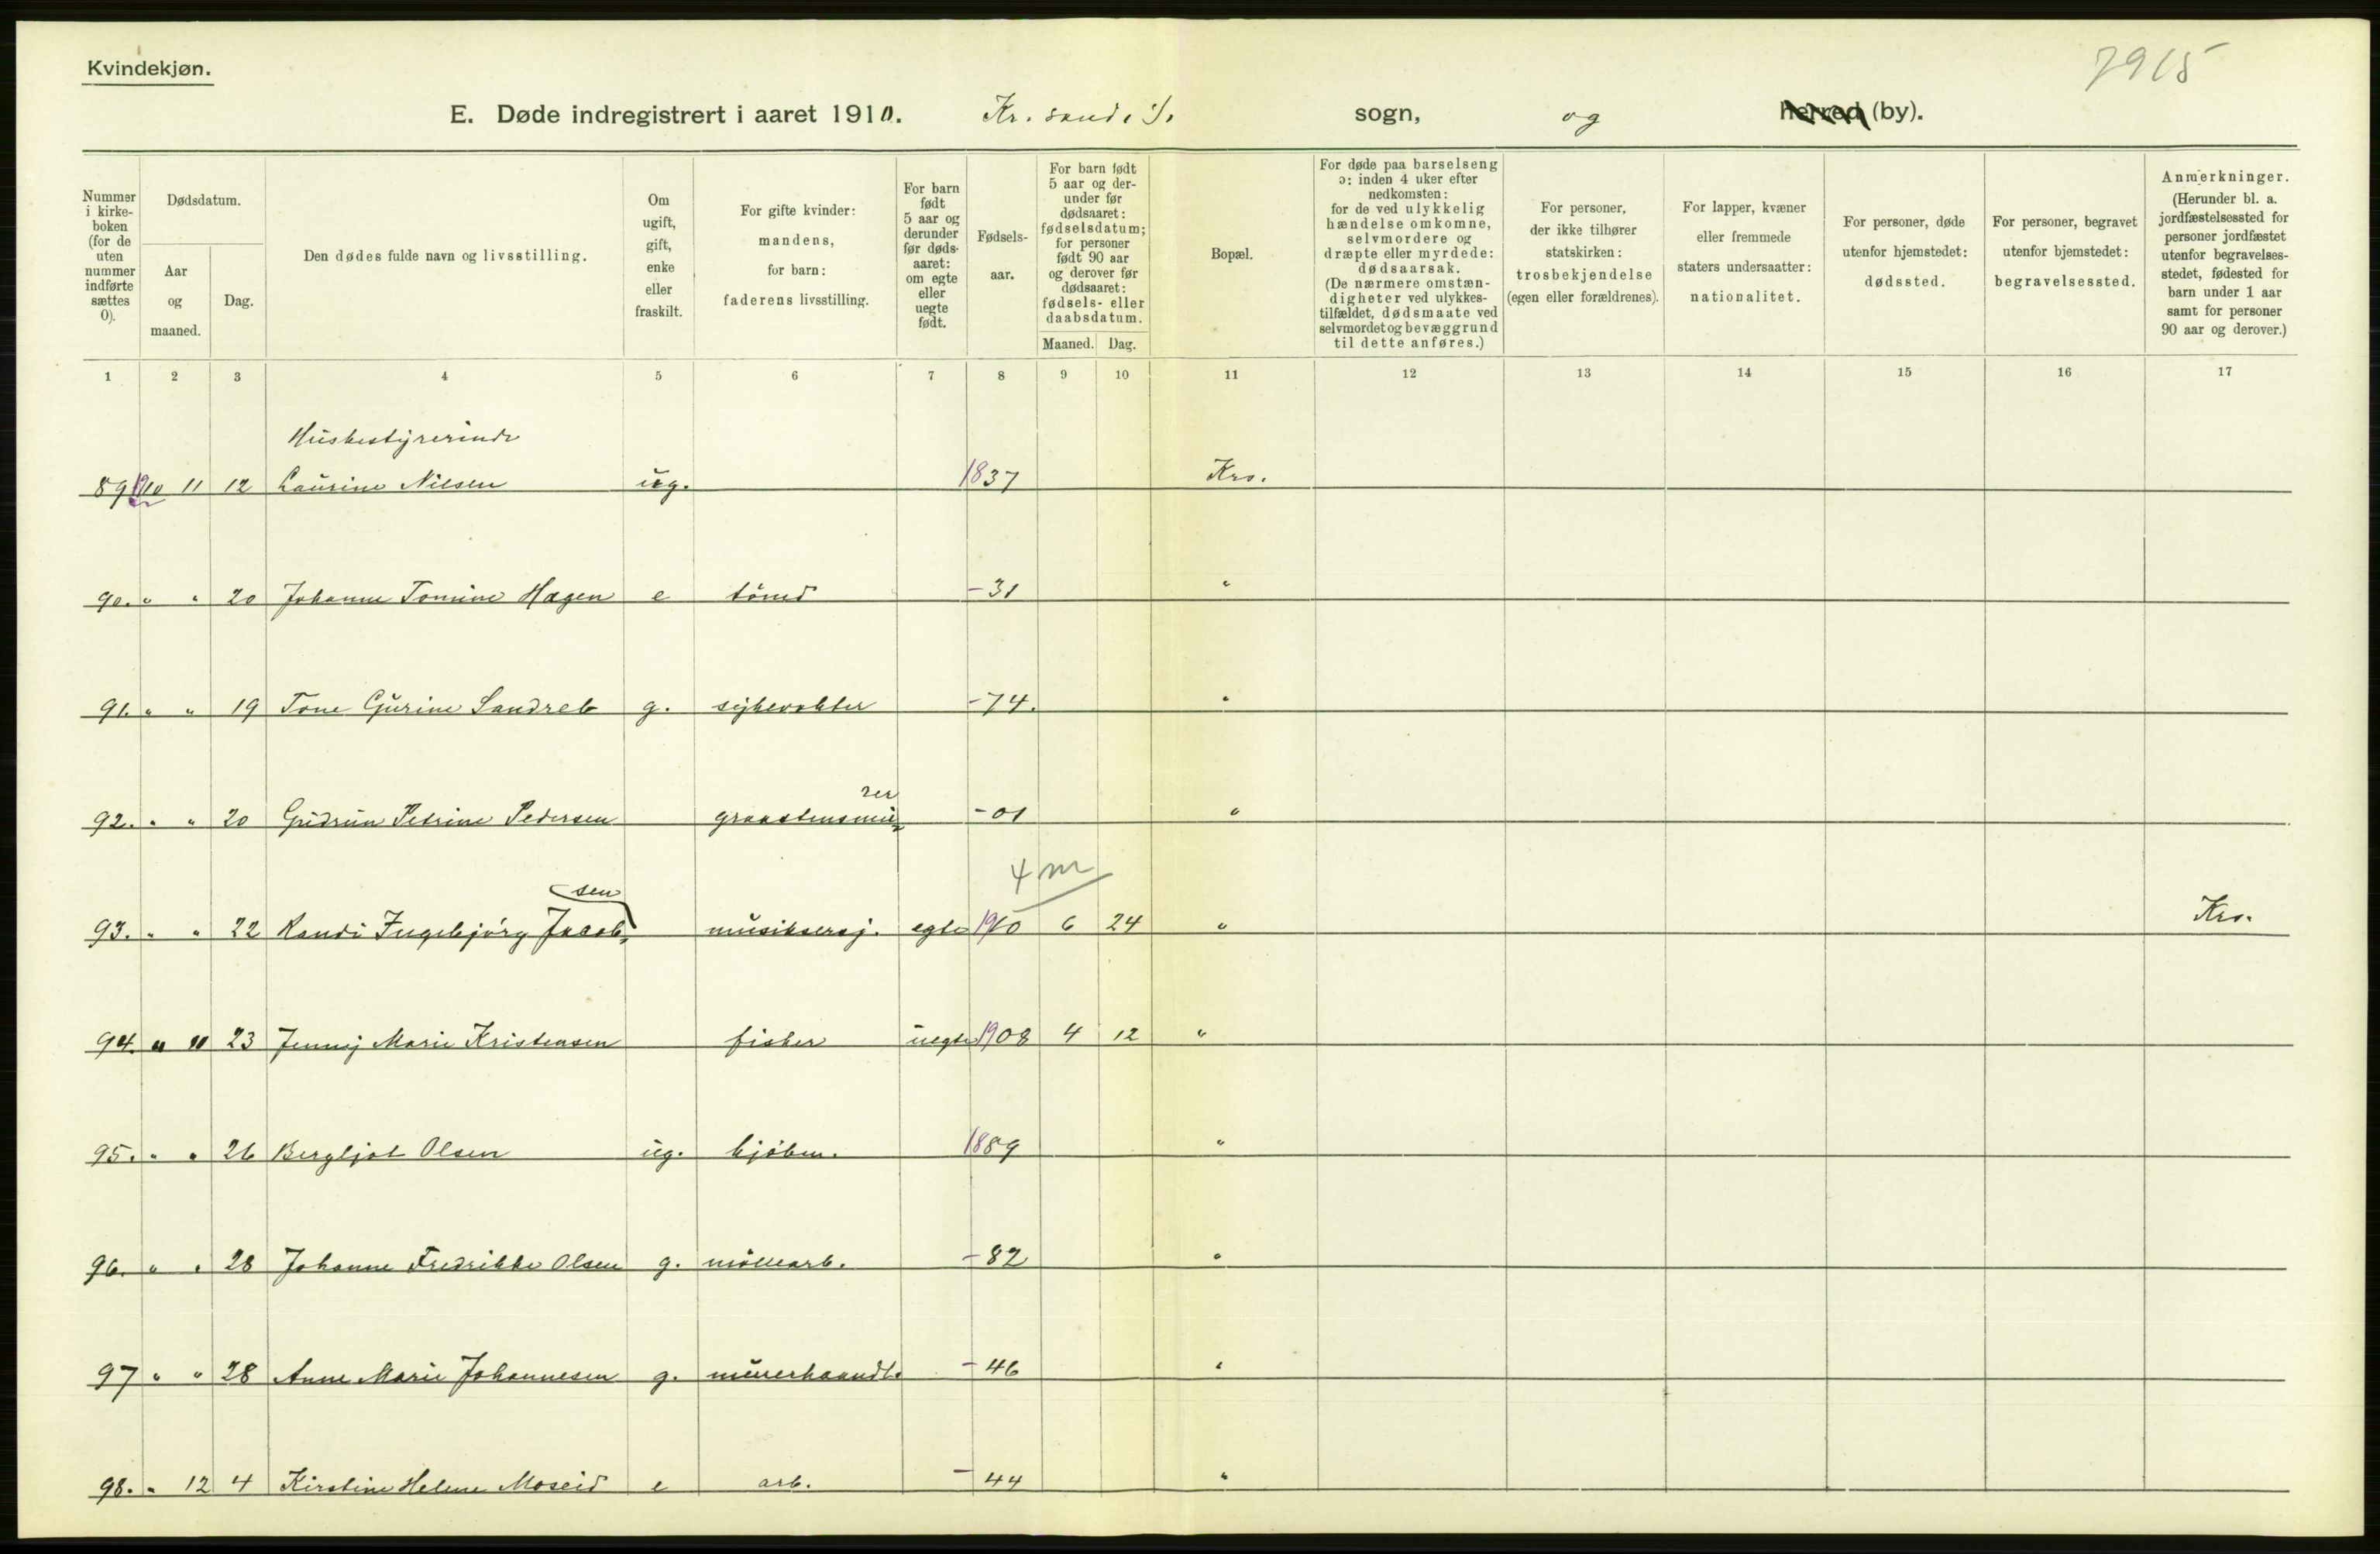 Kvindekjøn.
7915
E. Døde indregistrert i aaret 1910. Kr.sand. S. sogn, og herred (by).
Nummer i kirke-boken (for de uten nummer indførte sættes 0).
Dødsdatum.
Aar og maaned.
Dag.
Den dødes fulde navn og livsstilling.
Om ugift, gift, enke eller fraskilt.
For gifte kvinder: mandens, for barn: faderens livsstilling.
For barn født 5 aar og derunder før døds-aaret: om egte eller uegte født.
Fødsels-aar.
For barn født 5 aar og der-under før dødsaaret: fødselsdatum; for personer født 90 aar og derover før dødsaaret: fødsels- eller daabsdatum.
Maaned. Dag.
Bopæl.
For døde paa barselseng ɔ: inden 4 uker efter nedkomsten: for de ved ulykkelig hændelse omkomne, selvmordere og dræpte eller myrdede: dødsaarsak. (De nærmere omstæn-digheter ved ulykkes-tilfældet, dødsmaate ved selvmordet og bevæggrund til dette anføres.)
For personer, der ikke tilhører statskirken: trosbekjendelse (egen eller forældrenes).
For lapper, kvæner eller fremmede staters undersaatter: nationalitet.
For personer, døde utenfor hjemstedet: dødssted.
For personer, begravet utenfor bjemstedet: begravelsessted.
Anmerkninger. (Herunder bl. a. jordfæstelsessted for personer jordfæstet utenfor begravelses-stedet, fødested for barn under 1 aar samt for personer 90 aar og derover.)
1 2 3 4 5 6 7 8 9 10 11 12 13 14 15 16 17
Husbestyrerinde
89 1910 11 12 Laurine Nilsen ug. 1837 Krs.
90. " " 20 Johanne Tomine Hagen e tömd -31 "
91. " " 19 Tone Gurine Sandreb g. sykevokter -74. "
rer
92. " " 20 Gudrun Petrine Pedersen graastensmu -01 "
4 m
sen
93. " " 22 Randi Ingebjörg Jacob musikserj. egte 1910 6 24 " Krs.
94. " 11 23 Jenny Marie Kristensen fisker uegte 1908 4 12 "
95. " " 26 Bergljot Olsen ug. kjöbm. 1889 "
96. " " 28 Johanne Fredrikke Olsen g. möllearb. -82 "
97 " " 28 Anne Marie Johannesen g. murerhaandt. -46 "
98. " 12 4 Kirstine Helene Moseid e arb. -44 "